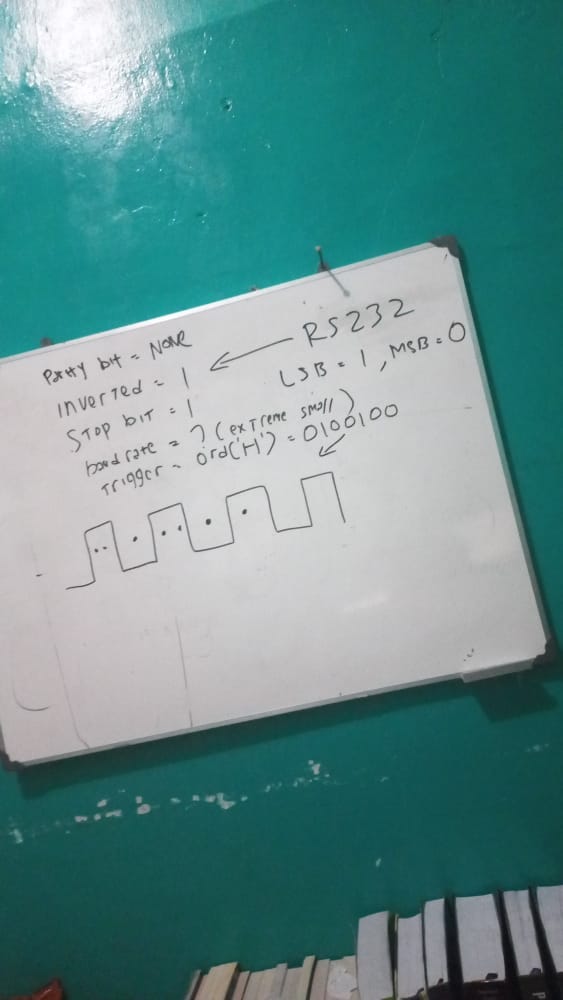 Parity bit = None
RS232
Inverted = 1
LSB = 1, MSB = 0
Stop bit = 1
baud rate = ? (extreme small)
Trigger = ord('H') = 0100100